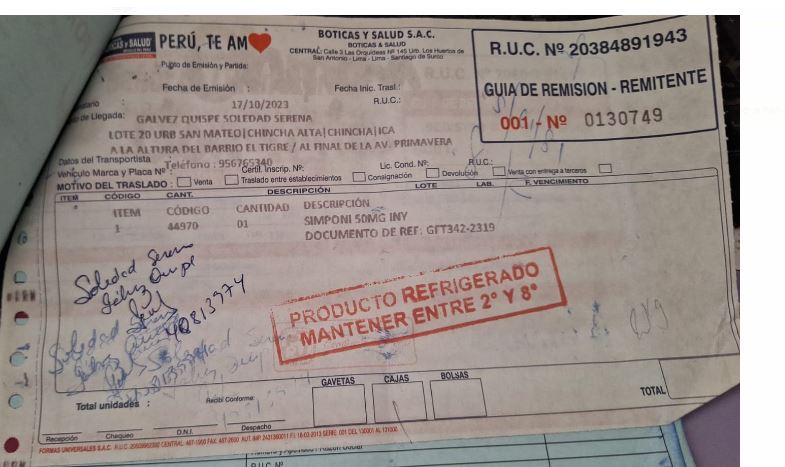 BOTICAS Y SALUD S.A.C.
BOTICAS & SALUD
CENTRAL: Calle 3 Las Orquídeas Nº 145 Urb. Los Huertos de
San Antonio - Lima - Lima - Santiago de Surco
PERÚ, TE AM
Punto de Emisión y Partida:
R.U.C. Nº 20384891943
GUIA DE REMISION - REMITENTE
001 - Nº 0130749
Fecha de Emisión :
Fecha Inic. Trasl.:
17/10/2023
R.U.C.:
de Llegada:
GALVEZ QUISPE SOLEDAD SERENA
LOTE 20 URB SAN MATEO|CHINCHA ALTA|CHINCHA|ICA
A LA ALTURA DEL BARRIO EL TIGRE / AL FINAL DE LA AV. PRIMAVERA
Datos del Transportista
Teléfono : 956765340
Vehículo Marca y Placa Nº :
Certif. Inscrip. Nº:
Lic. Cond. Nº:
R.U.C.:
MOTIVO DEL TRASLADO :
Venta
Traslado entre establecimientos
Consignación
Devolución
Venta con entrega a terceros
ITEM CÓDIGO CANT. DESCRIPCIÓN LOTE LAB. F. VENCIMIENTO
ITEM CÓDIGO CANTIDAD DESCRIPCIÓN
1 44970 01 SIMPONI 50MG INY
DOCUMENTO DE REF: GFT342-2319
Soledad Serena
Gálvez Quispe
40813974
PRODUCTO REFRIGERADO
MANTENER ENTRE 2º Y 8º
GAVETAS CAJAS BOLSAS
Total unidades :
Recibí Conforme:
TOTAL
Recepción Chequeo D.N.I. Despacho
FORMAS UNIVERSALES S.A.C.
R.U.C. Nº